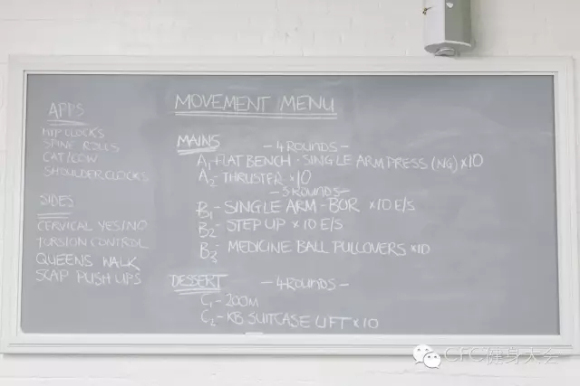 MOVEMENT MENU
APPS
HIP CLOCKS
SPINE ROLLS
CAT/COW
SHOULDER CLOCKS
SIDES
CERVICAL YES/NO
TORSION CONTROL
QUEENS WALK
SCAP PUSH UPS
MAINS
-4 ROUNDS-
A1-FLAT BENCH-SINGLE ARM PRESS (NG) ×10
A2-THRUSTER ×10
-3 ROUNDS-
B1-SINGLE ARM-BOR ×10 E/S
B2-STEP UP ×10 E/S
B3-MEDICINE BALL PULLOVERS ×10
DESSERT
-4 ROUNDS-
C1-200M
C2-KB SUITCASE LIFT ×10
CFC健身大会